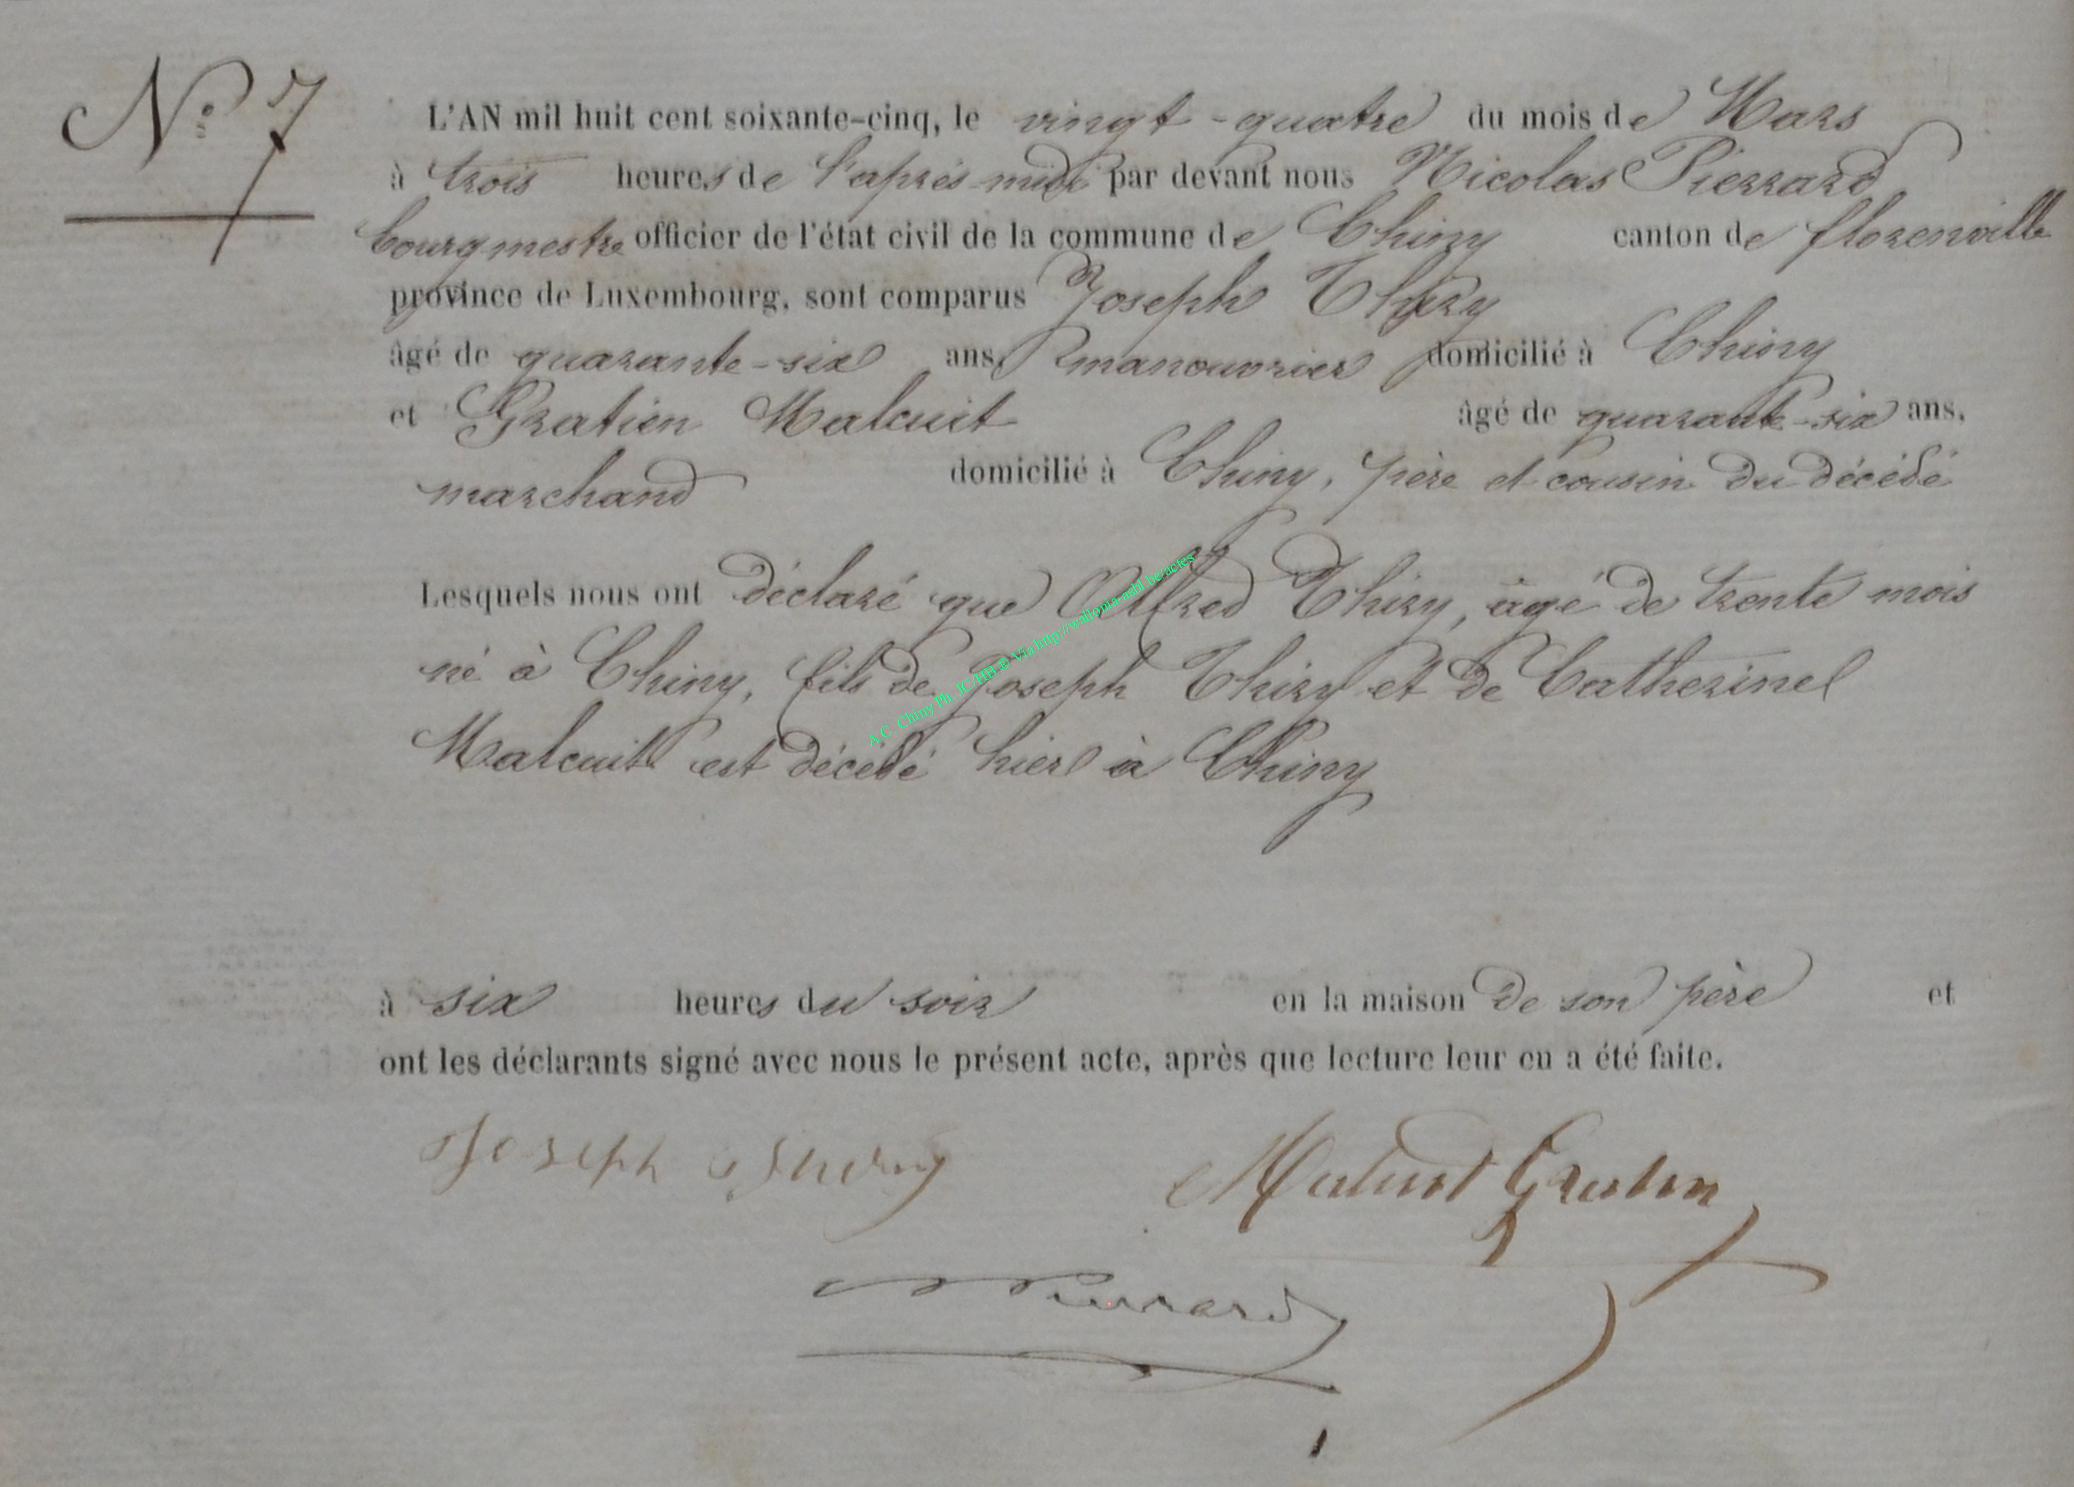 N° 7
L'AN mil huit cent soixante-cinq, le vingt-quatre du mois de Mars
à trois heures de l'après-midi par devant nous Nicolas Pierrard
bourgmestre officier de l'état civil de la commune de Chiny canton de florenville
province de Luxembourg, sont comparus Joseph Thiry
âgé de quarante-six ans, manouvrier domicilié à Chiny
et Gratien Malcuit âgé de quarante-six ans,
marchand domicilié à Chiny, père et cousin du décédé
Lesquels nous ont déclaré que Alfred Thiry, âgé de trente mois
né à Chiny, fils de Joseph Thiry et de Catherine
Malcuit est décédé hier à Chiny
A.C. Chiny Ph. JC HB © Via http://wallonia-asbl.be/actes
à six heures du soir en la maison de son père et
ont les déclarants signé avec nous le présent acte, après que lecture leur en a été faite.
Joseph Thiry Malcuit Gratien
Pierrard